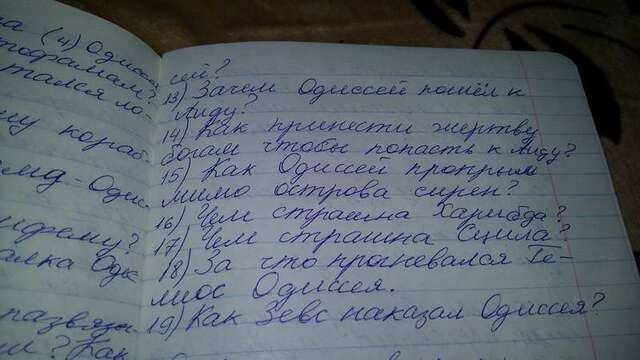 (4) Одиссей
тофагам?
тался ло-
му кораб-
Одис-
ифему?
алка Оде
развяза
? Как
сей?
13) Зачем Одиссей пошёл к
Аиду?
14) Как принести жертву
богам чтобы попасть к Аиду?
15) Как Одисей проплыл
мимо острова сирен?
16) Чем страшна Харибда?
17) Чем страшна Сцила?
18) За что прогневался Ге-
лиос Одиссея.
19) Как Зевс наказал Одиссея?